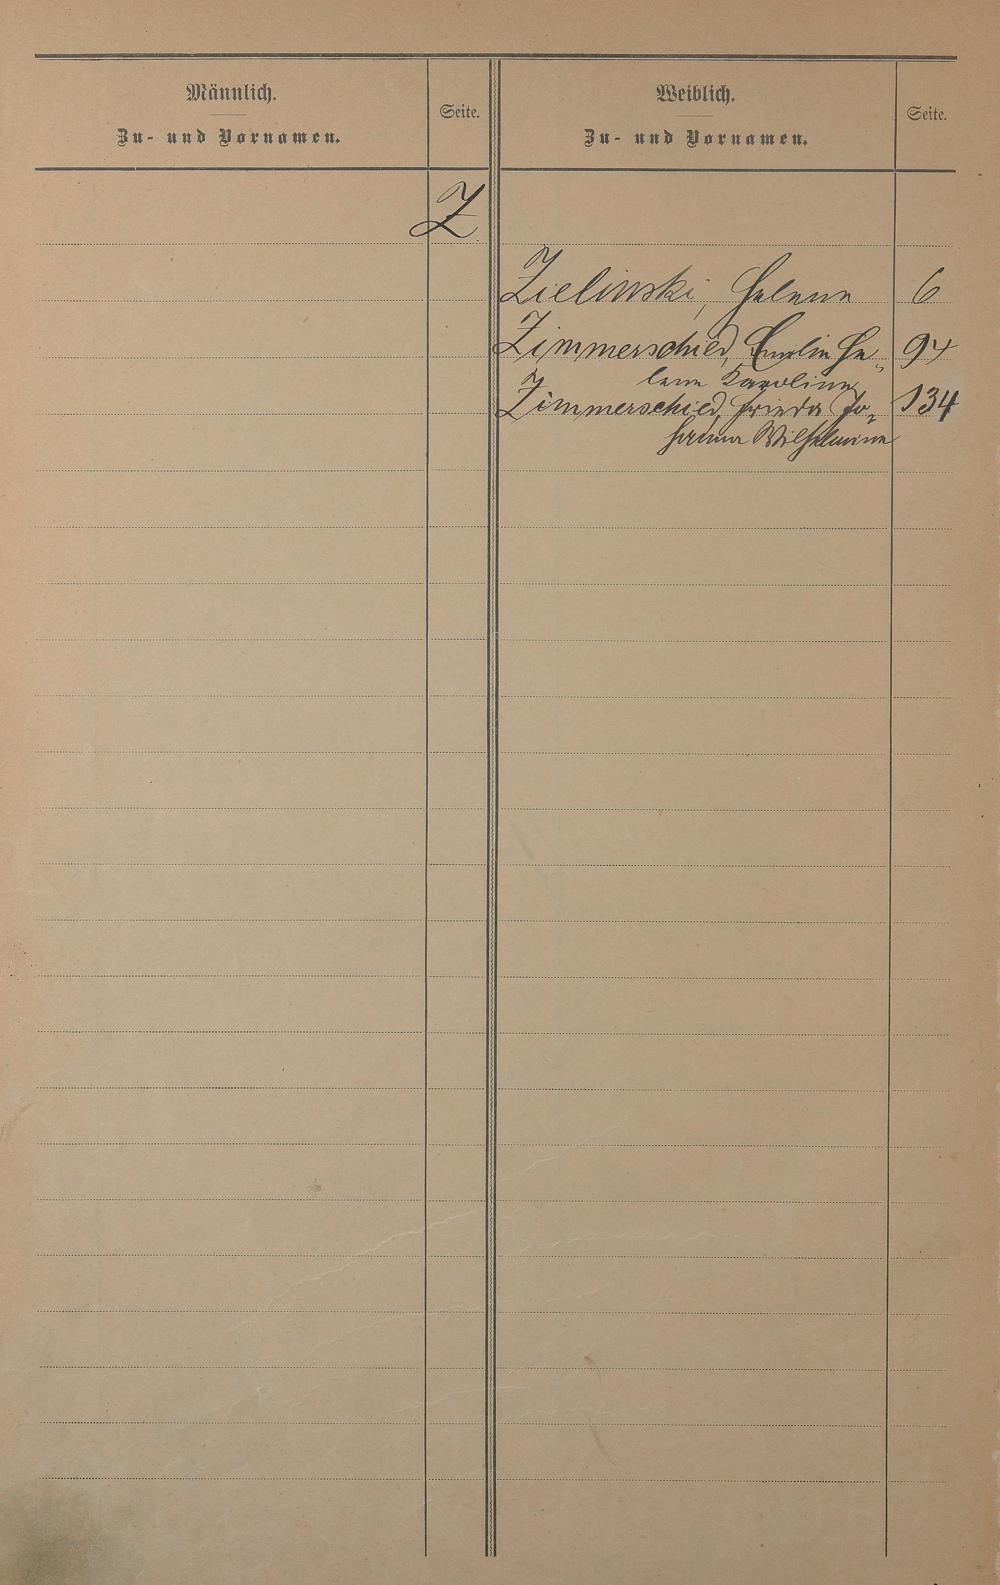 Männlich.
Zu- und Vornamen.
Seite.
Weiblich.
Zu- und Vornamen.
Seite.
Z
Zielinski, Helene 6
Zimmerschied, Emilie He- 94
lene Karoline
Zimmerschied, Frieda Jo- 134
hanna Wilhelmine